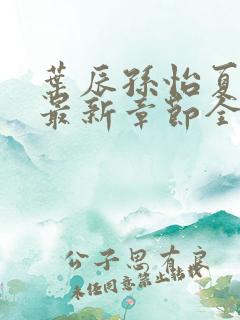 叶辰孙怡夏
最新章节全
公子思有良
未经同意禁止转载